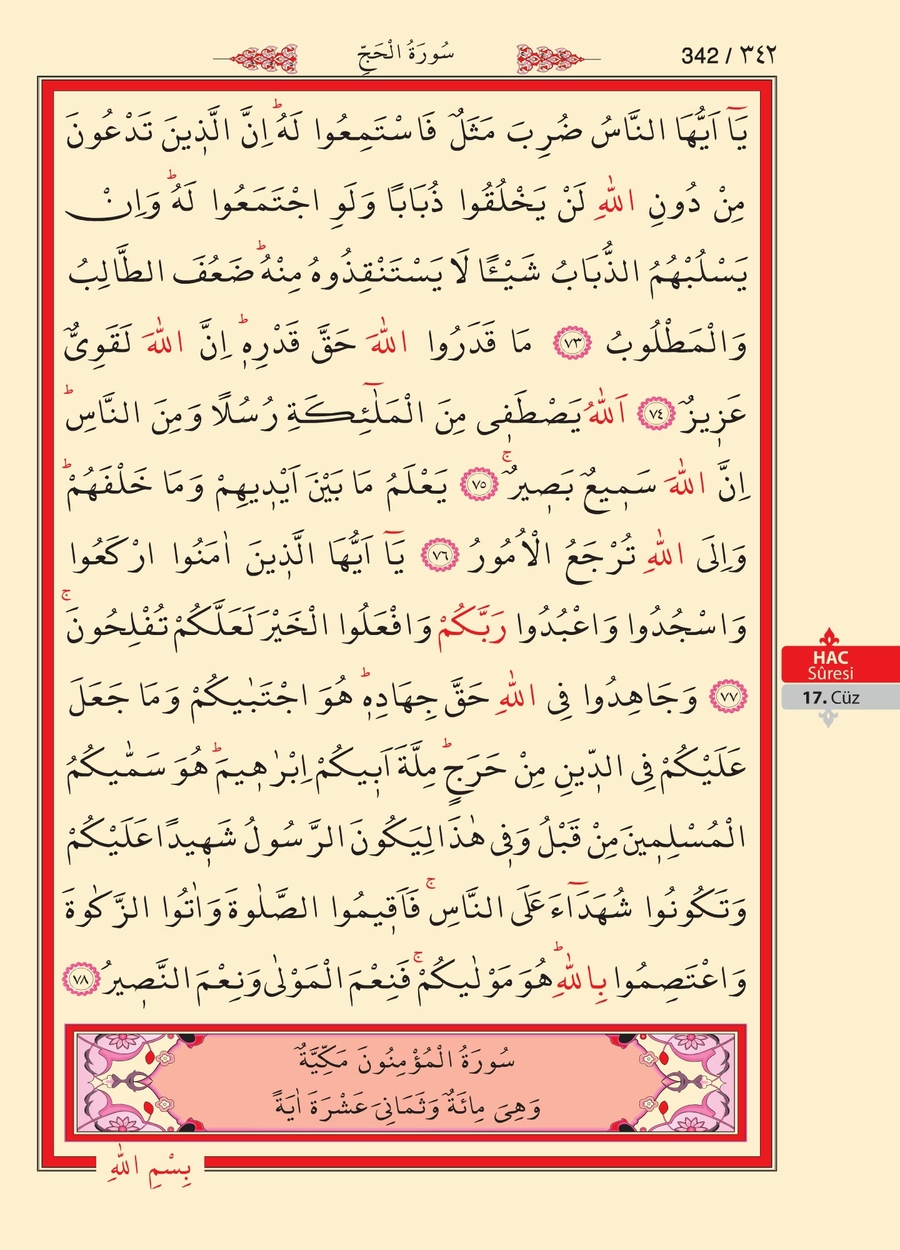 342 / ٣٤٢
سُورَةُ الْحَجِّ
يَٓا اَيُّهَا النَّاسُ ضُرِبَ مَثَلٌ فَاسْتَمِعُوا لَهُۜ اِنَّ الَّذ۪ينَ تَدْعُونَ
مِنْ دُونِ اللّٰهِ لَنْ يَخْلُقُوا ذُبَابًا وَلَوِ اجْتَمَعُوا لَهُۜ وَاِنْ
يَسْلُبْهُمُ الذُّبَابُ شَيْـًٔا لَا يَسْتَنْقِذُوهُ مِنْهُۜ ضَعُفَ الطَّالِبُ
وَالْمَطْلُوبُ ﴿٧٣﴾ مَا قَدَرُوا اللّٰهَ حَقَّ قَدْرِه۪ۜ اِنَّ اللّٰهَ لَقَوِيٌّ
عَز۪يزٌ ﴿٧٤﴾ اَللّٰهُ يَصْطَف۪ي مِنَ الْمَلٰٓئِكَةِ رُسُلًا وَمِنَ النَّاسِۜ
اِنَّ اللّٰهَ سَم۪يعٌ بَص۪يرٌۚ ﴿٧٥﴾ يَعْلَمُ مَا بَيْنَ اَيْد۪يهِمْ وَمَا خَلْفَهُمْۜ
وَاِلَى اللّٰهِ تُرْجَعُ الْاُمُورُ ﴿٧٦﴾ يَٓا اَيُّهَا الَّذ۪ينَ اٰمَنُوا ارْكَعُوا
وَاسْجُدُوا وَاعْبُدُوا رَبَّكُمْ وَافْعَلُوا الْخَيْرَ لَعَلَّكُمْ تُفْلِحُونَۚ
﴿٧٧﴾ وَجَاهِدُوا فِي اللّٰهِ حَقَّ جِهَادِه۪ۜ هُوَ اجْتَبٰيكُمْ وَمَا جَعَلَ
عَلَيْكُمْ فِي الدّ۪ينِ مِنْ حَرَجٍۜ مِلَّةَ اَب۪يكُمْ اِبْرٰه۪يمَۜ هُوَ سَمّٰيكُمُ
الْمُسْلِم۪ينَ مِنْ قَبْلُ وَف۪ي هٰذَا لِيَكُونَ الرَّسُولُ شَه۪يدًا عَلَيْكُمْ
وَتَكُونُوا شُهَدَٓاءَ عَلَى النَّاسِۚ فَاَق۪يمُوا الصَّلٰوةَ وَاٰتُوا الزَّكٰوةَ
وَاعْتَصِمُوا بِاللّٰهِۜ هُوَ مَوْلٰيكُمْۚ فَنِعْمَ الْمَوْلٰى وَنِعْمَ النَّص۪يرُ ﴿٧٨﴾
سُورَةُ الْمُؤْمِنُونَ مَكِّيَّةٌ
وَهِيَ مِائَةٌ وَثَمَانِيَ عَشْرَةَ اٰيَةً
بِسْمِ اللّٰهِ
HAC
Sûresi
17. Cüz